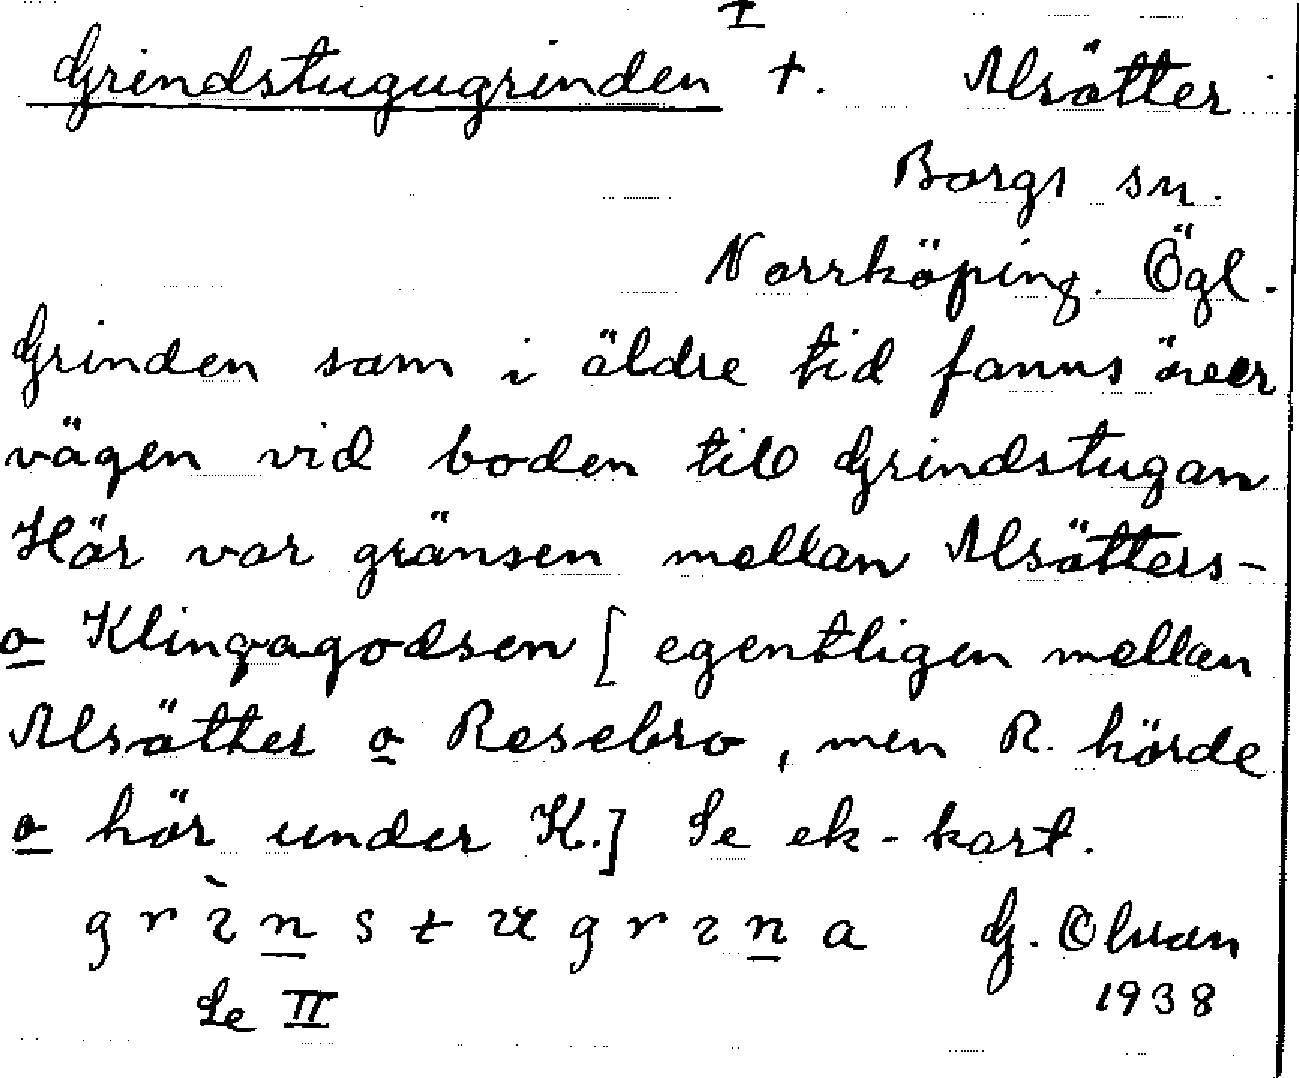 I
Grindstugugrinden †. Alsätter
Borgs sn.
Norrköping. Ögl.
Grinden som i äldre tid fanns över
vägen vid boden till Grindstugan
Här var gränsen mellan Alsätters-
o Klingagodsen [egentligen mellan
Alsätter o Resebro, men R. hörde
o hör under K.] Se ek-kart.
grìnstugrina G. Olsson
Se II 1938